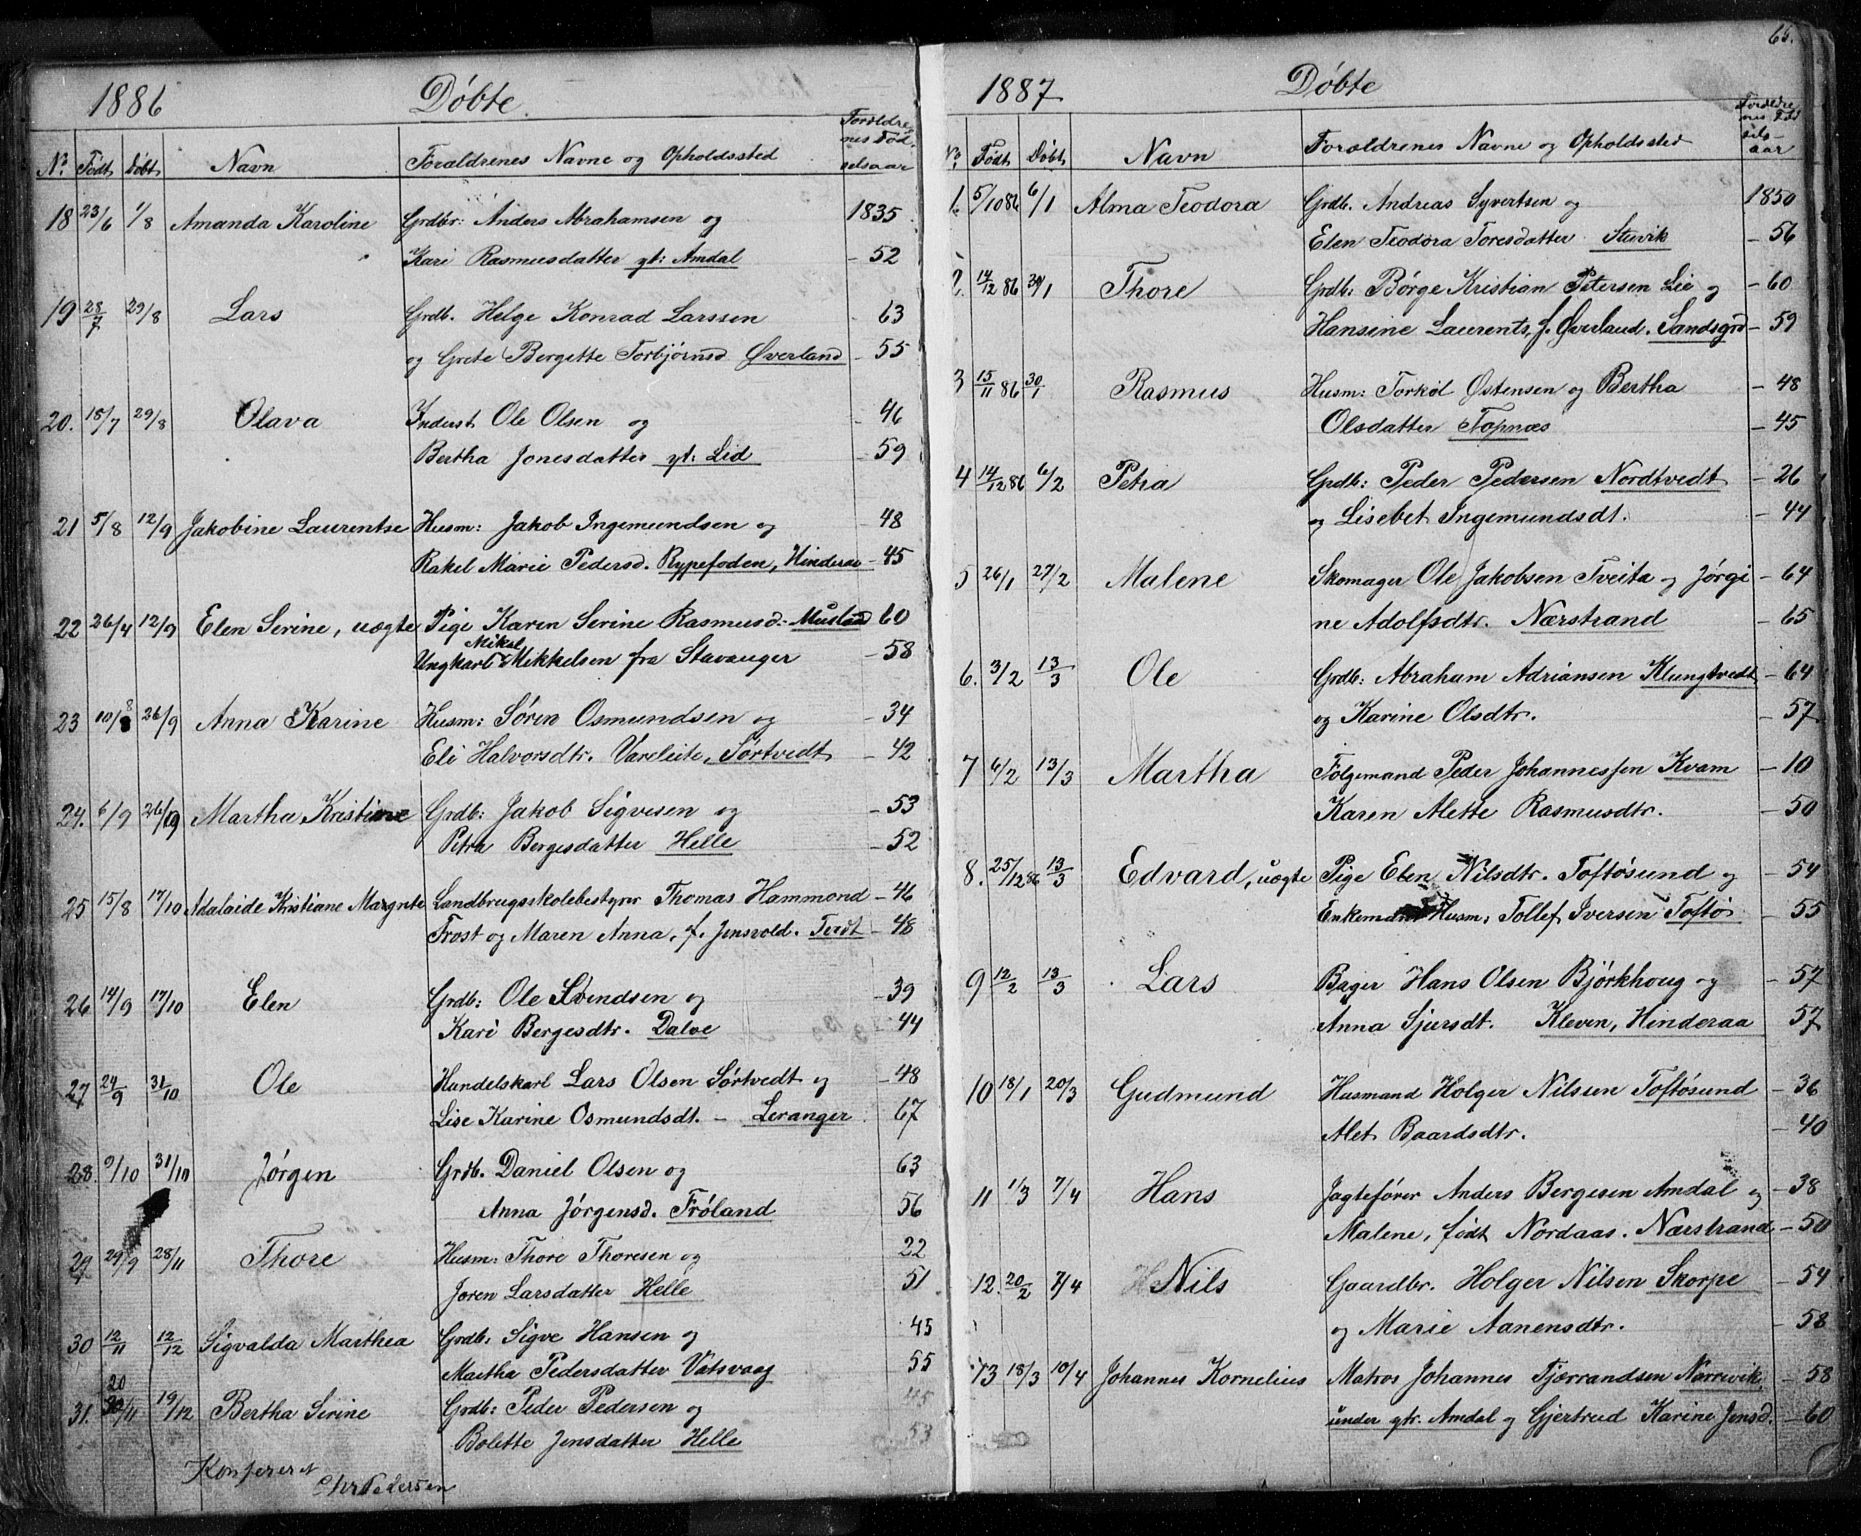 1886 Døbte
Nr. Født Døbt Navn Forældrenes Navne og Opholdssted Forældrenes Fødselsaar
18 23/6 1/8 Amanda Karoline Grdbr: Anders Abrahamsen og 1835
Kari Rasmusdatter yt: Amdal - 52
19 28/7 29/8 Lars Grdb. Helge Konrad Larssen - 63
og Grete Bergitte Torbjørnsd. Øverland - 55
20. 18/7 29/8 Olava Inderst Ole Olsen og - 46
Bertha Jonesdatter yt: Lid - 59
21 5/8 12/9 Jakobine Laurentse Husm: Jakob Ingemundsen og - 48
Rakel Marie Pedersd. Rypefoden, Hinderaa - 45
22 26/4 12/9 Elen Serine, uægte Pige Karen Serine Rasmusd. Musland 60
Ungkarl Mikal Mikkelsen fra Stavanger - 58
23 10/8 26/9 Anna Karine Husm: Søren Osmundsen og - 34
Eli Halvorsdtr. Vareleite, Sørtvedt - 42
24. 6/9 26/9 Martha Kristine Grdb: Jakob Sigvesen og - 53
Petra Bergesdatter Helle - 52
25 15/8 17/10 Adalaide Kristiane Margrete Landbrugsskolebestyrer Thomas Hammond - 46
Frost og Maren Anna, f. Jensvold. Tvedt - 48
26 14/9 17/10 Elen Grdb: Ole Svendsen og - 39
Kari Bergesdtr. Dalve - 44
27 24/9 31/10 Ole Handelskarl Lars Olsen Sørtvedt og - 48
Lise Karine Osmundsdt. - Leranger 67
28. 9/10 31/10 Jørgen Grdb. Daniel Olsen og 63
Anna Jørgensd. Frøland 56
29 29/9 28/11 Thore Husm: Thore Thoresen og 22
Joren Larsdatter Helle 51
30 12/11 12/12 Sigvalda Marthea Grdb: Sigve Hansen og 45
Martha Pedersdatter Vatsvaag 55
31. 20/11 19/12 Bertha Serine Grdb: Peder Pedersen og 45
Bolette Jensdatter Helle 53
Konfereret
Chr Pedersen
65.
1887 Døbte
Nr. Født Døbt Navn Forældrenes Navne og Opholdssted Forældrenes Fødselsaar
1. 5/10 86 6/1 Alma Teodora Grdb. Andreas Syvertsen og 1850
Elen Teodora Toresdatter Stuvik - 56
2. 14/12 86 30/1 Thore Grdb: Børge Kristian Petersen Lie og - 60
Hansine Laurents, f. Øverland. Sandsgrd - 59
3 15/11 86 30/1 Rasmus Husm: Torkel Østensen og Bertha - 48
Olsdatter Topnæs - 45
4 14/12 86 6/2 Petra Grdb: Peder Pedersen Nordtvedt - 26
og Lisebet Ingemundsdt. - 44
5 26/1 27/2 Malene Skomager Ole Jakobsen Tveita og Jørgi - 64
ne Adolfsdtr. Nærstrand - 65
6. 3/2 13/3 Ole Grdb: Abraham Adriansen Klungtvedt - 64
og Karine Olsdtr. - 57
7 6/2 13/3 Martha Følgemand Peder Johannessen Kvam - 10
Karen Alette Rasmusdtr. - 50
8. 25/12 86 13/3 Edvard, uægte Pige Elen Nilsdtr. Toftøsund og - 54
Enkemand Husm: Tollef Iversen Toftø - 55
9 12/2 13/3 Lars Bager Hans Olsen Bjørkhoug og - 57
Anna Sjursdt. Kleven, Hinderaa 57
10 18/1 20/3 Gudmund Husmand Holger Nilsen Toftøsund - 36
Alet Baardsdtr. - 40
11 1/3 7/4 Hans Jagtefører Anders Bergesen Amdal og - 38
Malene, født Nordaas. Nærstrand - 50
12. 20/2 7/4 Nils Gaardbr. Holger Nilsen Skorpe - 54
og Marie Aanensdtr. - 58
13 18/3 10/4 Johannes Kornelius Matros Johannes Tjærandsen Nørrevik, - 58
under gtr. Amdal og Gjertrud Karine Jensd. - 60